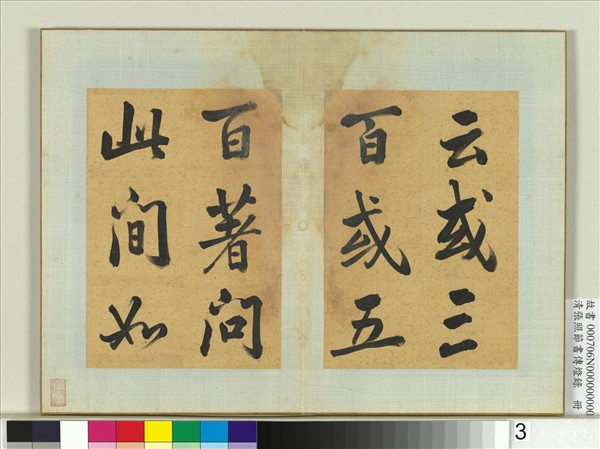 云或三
百或五
百著問
此間如
故書000706N000000000
清張照節書傳燈錄 冊
3